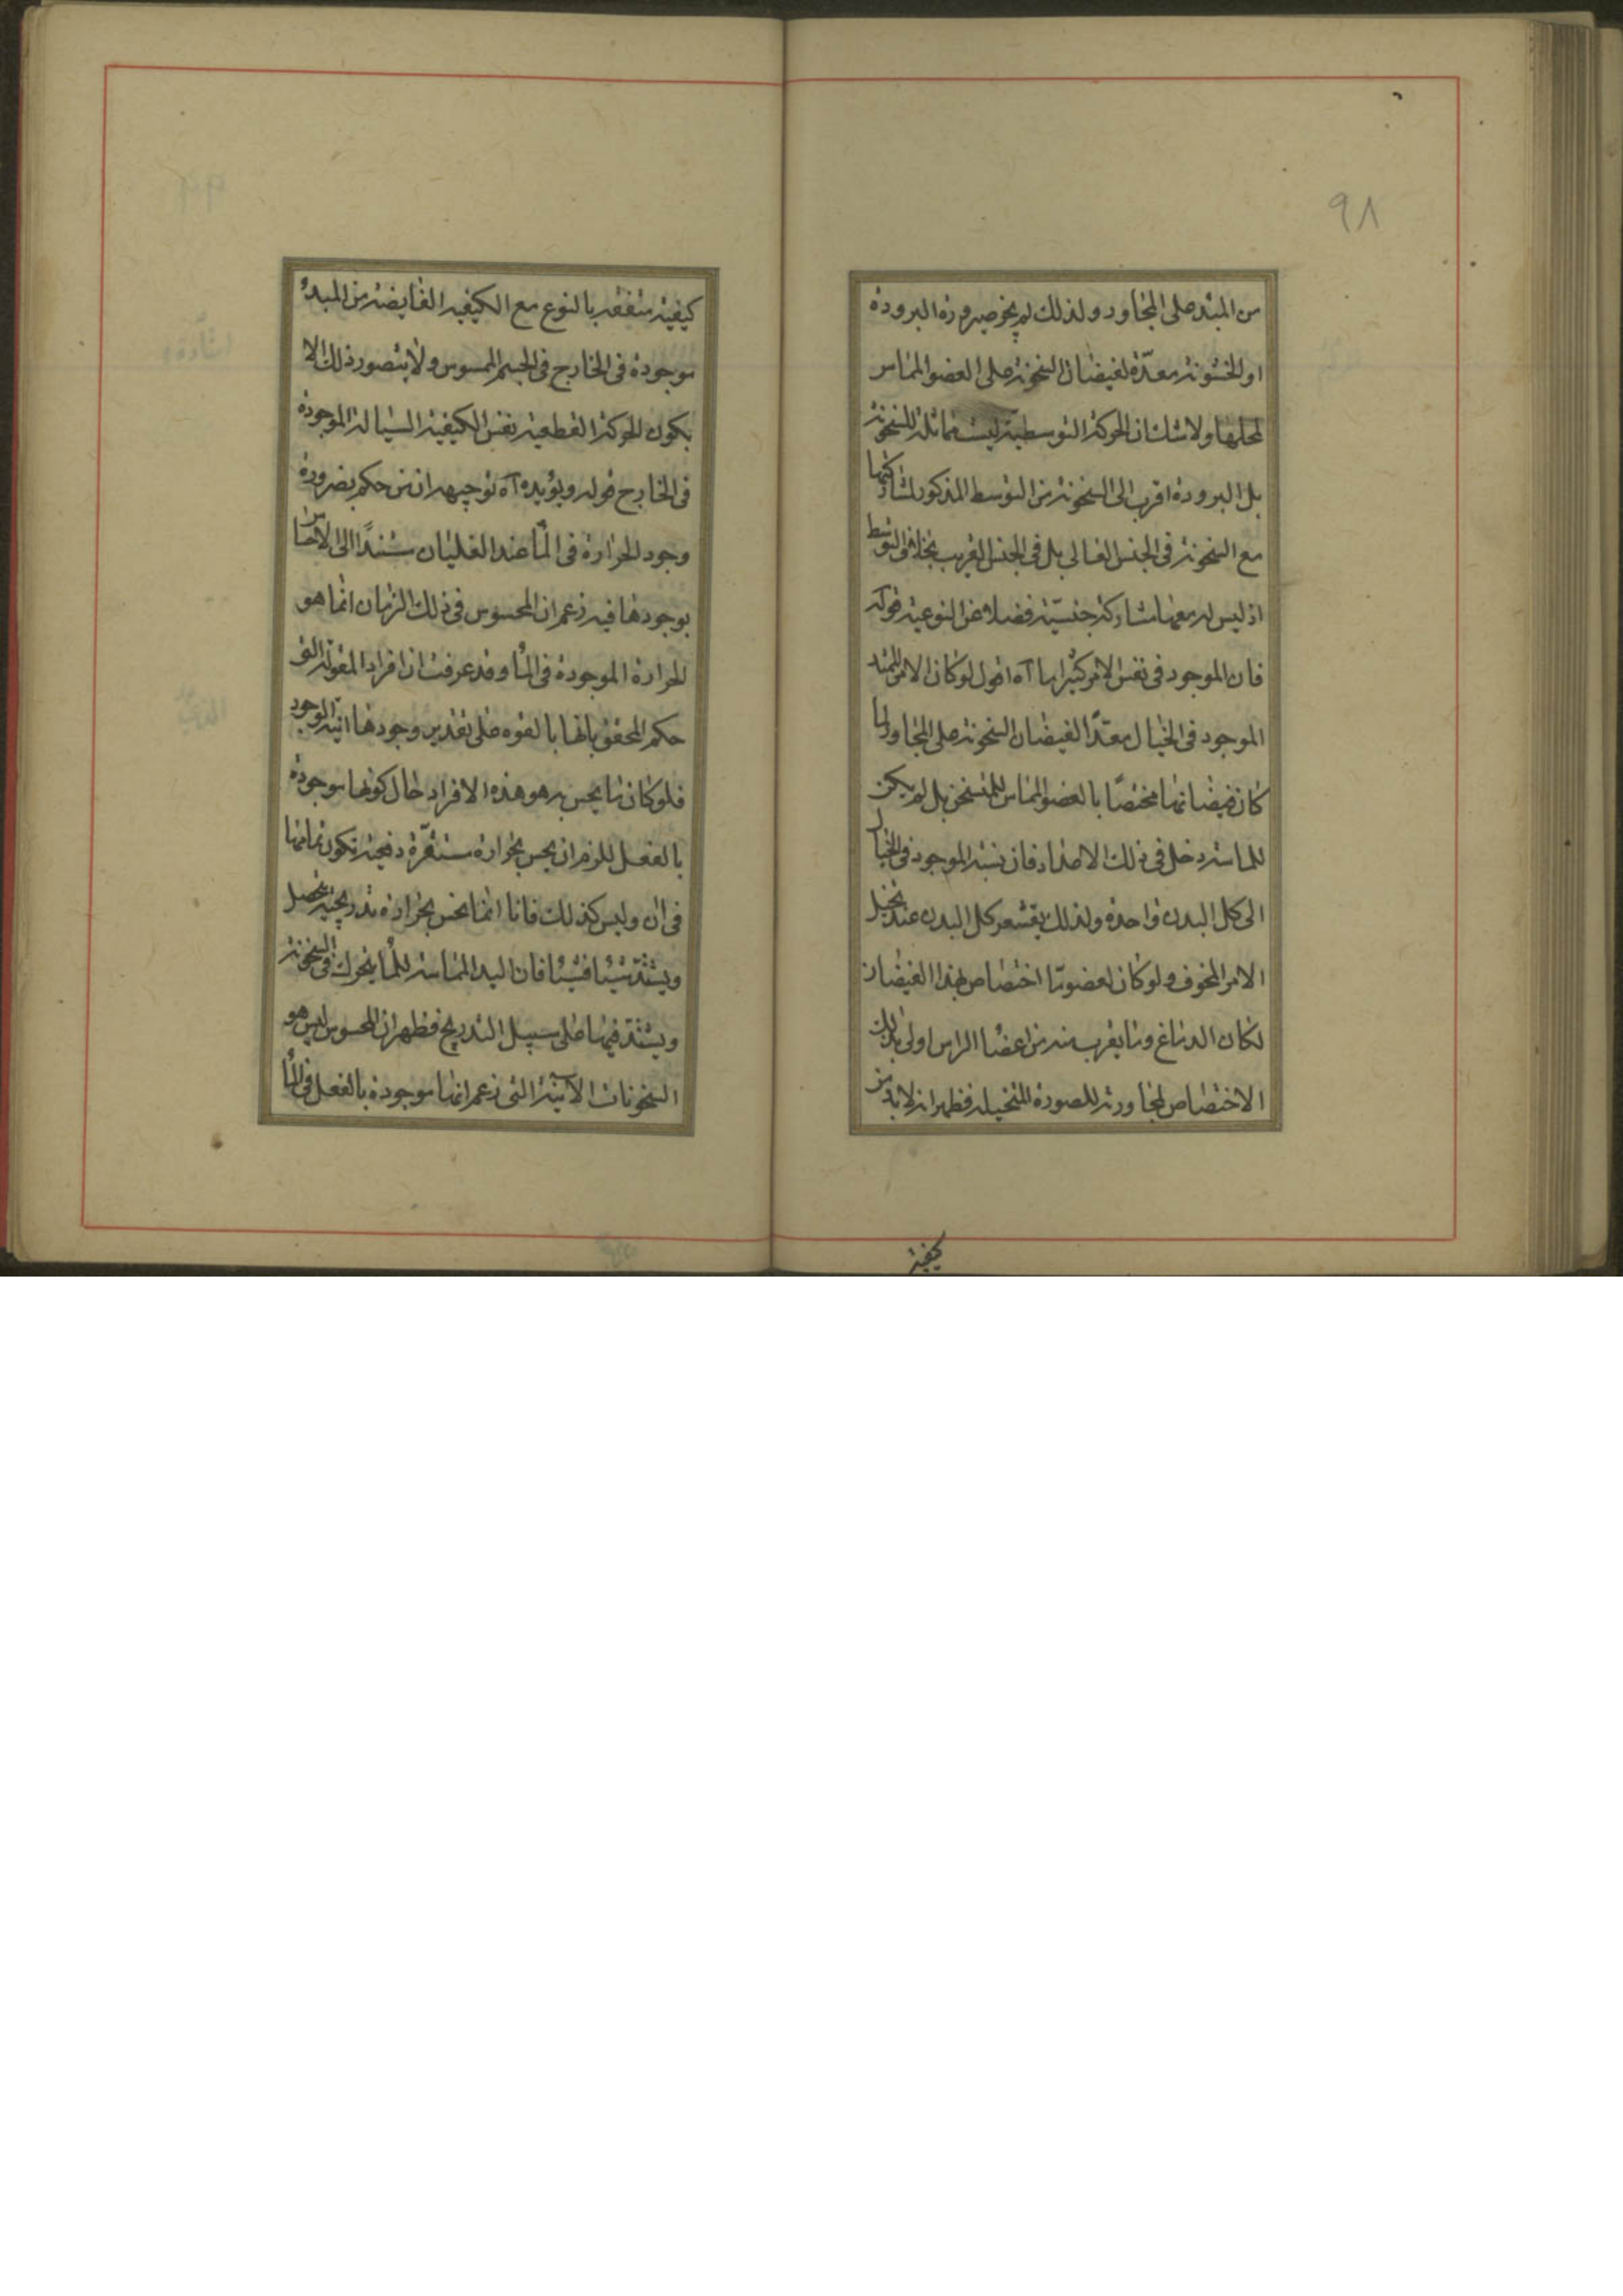 ٩٨
من المبدء على المجاور ولذلك لم يجز صيرورة البرودة
او الخشونة معدّة لفيضان السخونة على العضو المماس
لمحلها ولا شك ان الحركة التوسطية ليست مماثلة للسخونة
بل البرودة اقرب الى السخونة من التوسط المذكور لمشاركتها
مع السخونة فى الجنس العالى بل فى الجنس القريب بخلاف التوسط
اذ ليس له معها مشاركة جنسيّة فضلا عن النوعية قوله
فان الموجود فى نفس الامر كثيرا ما آه اقول لو كان الامر الممتد
الموجود فى الخيال معدًّا لفيضان السخونة على المجاور لما
كان فيضانها مختصًا بالعضو المماس للمتسخن بل لم يكن
للماسة دخل فى ذلك الاعداد فان نسبة الموجود فى الخيال
الى كل البدن واحدة ولذلك يقشعر كل البدن عند تخيل
الامر المخوف ولو كان لعضو ما اختصاص بهذا الفيضان
لكان الدماغ وما يقرب منه من اعضاء الراس اولى بذلك
الاختصاص لمجاورته للصورة المتخيلة فظهر انه لابد من
كيفية
كيفية متفقة بالنوع مع الكيفية الفايضة من المبدء
موجودة فى الخارج فى الجسم الممسوس ولا يتصور ذلك الا
بكون الحركة القطعية نفس الكيفية السيالة الموجودة
فى الخارج قوله ويؤيده آه توجيهه ان من حكم بضرورة
وجود الحرارة فى الماء عند الغليان مستندًا الى الاحساس
بوجودها فيه زعم ان المحسوس فى ذلك الزمان انما هو
الحرارة الموجودة فى الماء وقد عرفت ان افراد المقولة التى
حكم المحقق بانها بالقوه على تقدير وجودها آنية الوجود
فلو كان ما يحس به هو هذه الافراد حال كونها موجودة
بالفعل للزم ان يحس بحرارة مستقرّة دفعية تكون تمامها
فى ان وليس كذلك فانا انما نحس بحرارة تدريجية تحصل
ويشتدّ شيئا فشيئا فان اليد المماسة للماء يتحرك فى السخونة
ويشتدّ فيها على سبيل التدريج فظهر ان المحسوس ليس هو
السخونات الآنية التى زعم انها موجودة بالفعل فى الماء